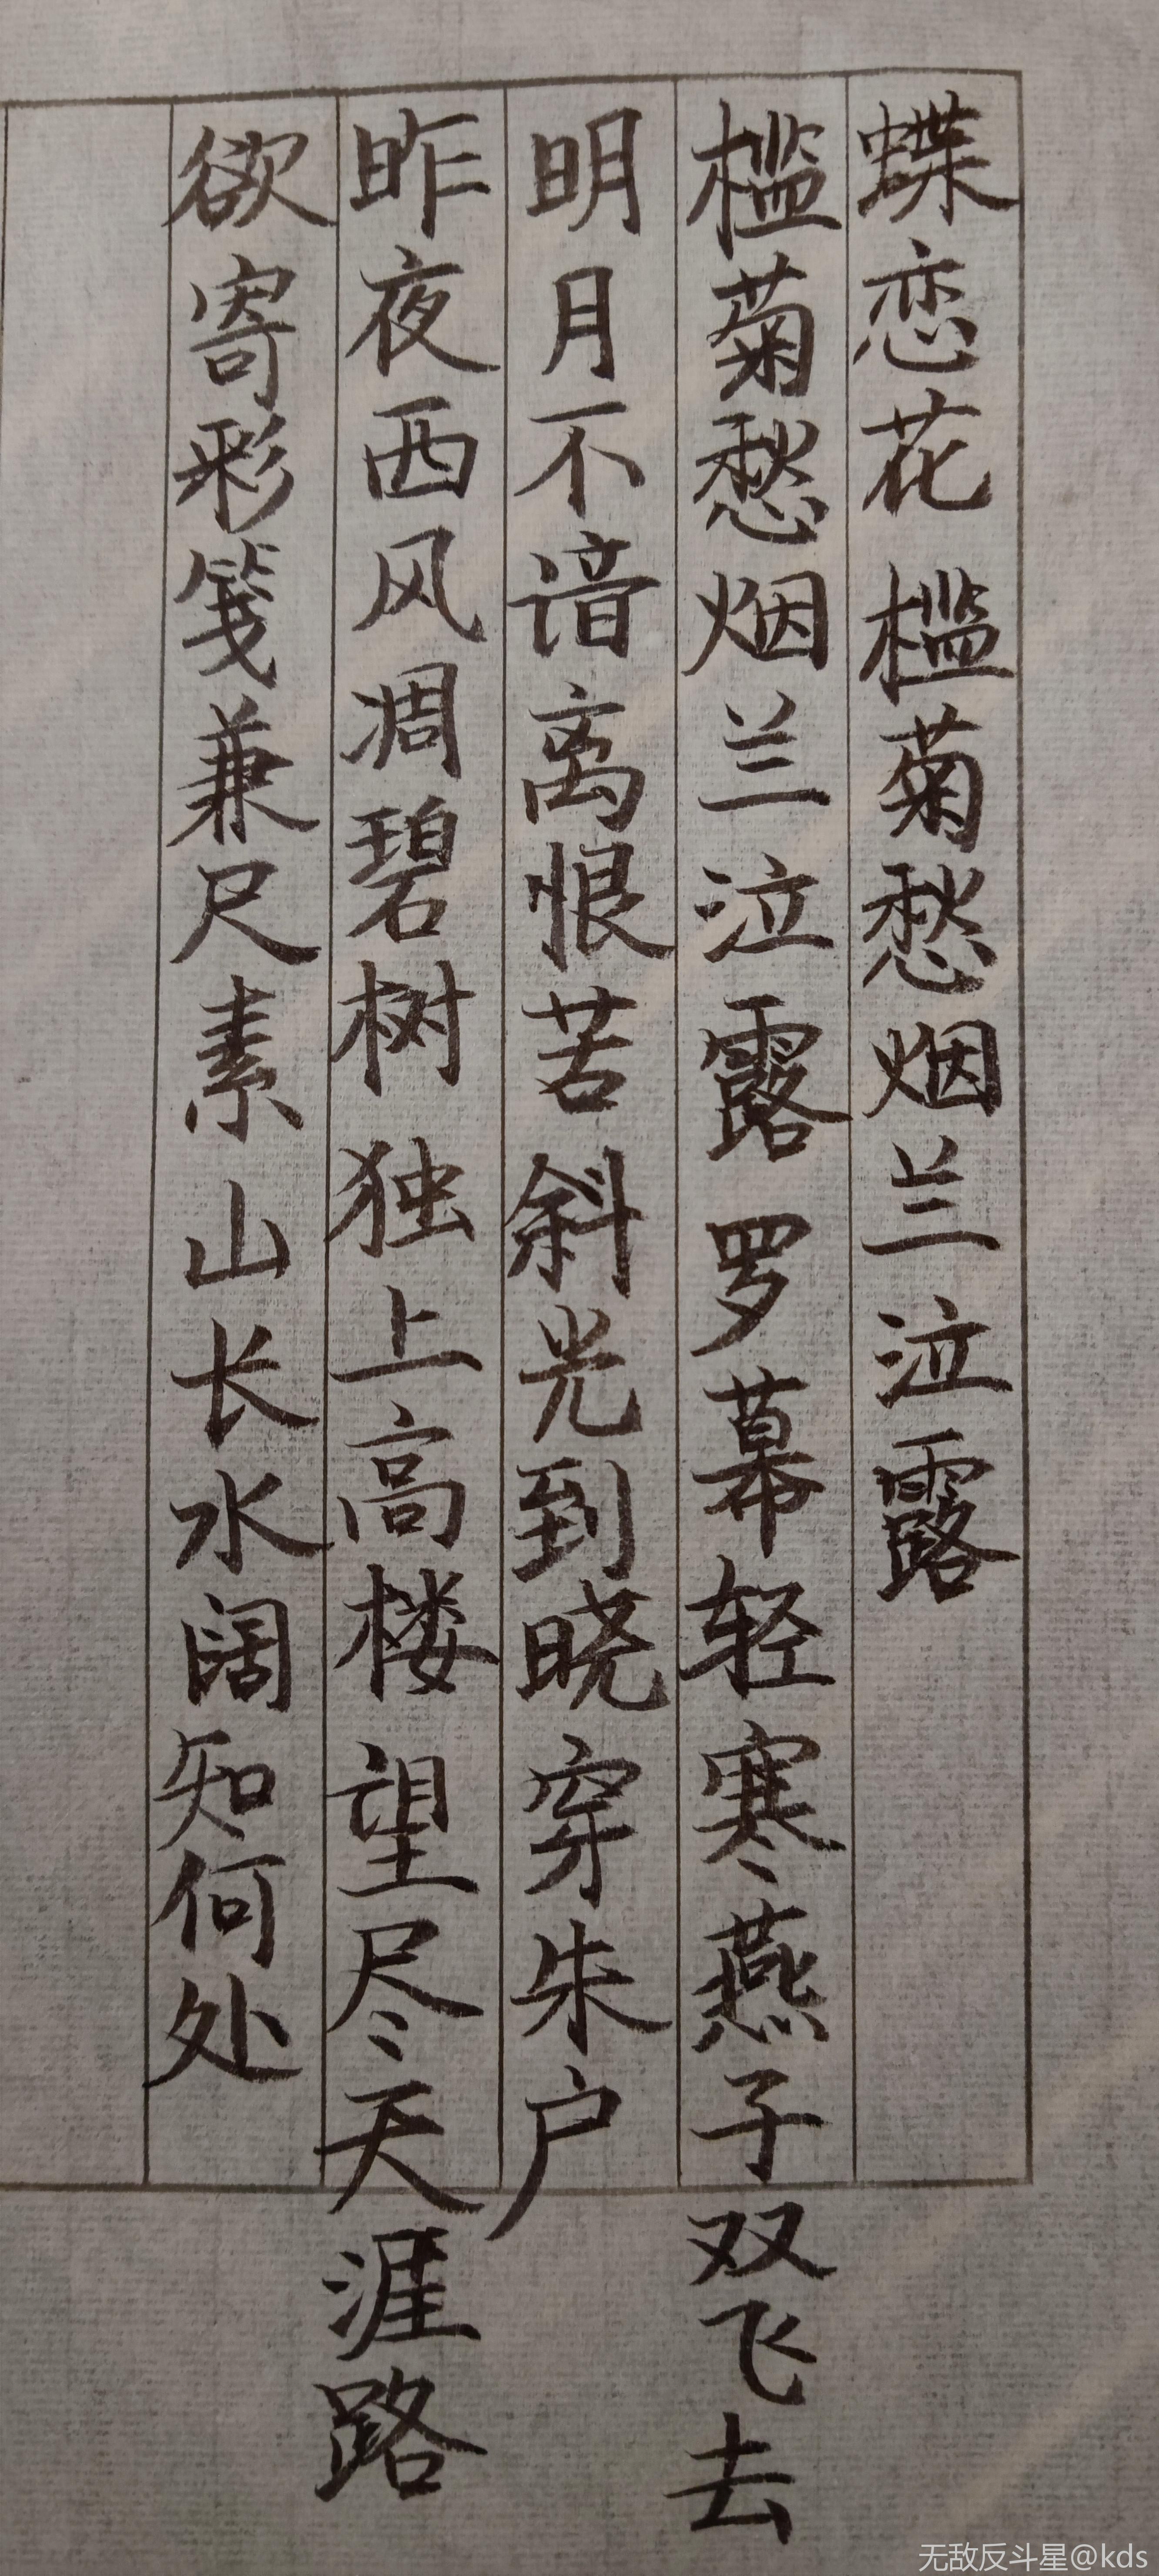 蝶恋花 槛菊愁烟兰泣露
槛菊愁烟兰泣露 罗幕轻寒燕子双飞去
明月不谙离恨苦 斜光到晓穿朱户
昨夜西风凋碧树 独上高楼 望尽天涯路
欲寄彩笺兼尺素 山长水阔知何处
无敌反斗星@kds